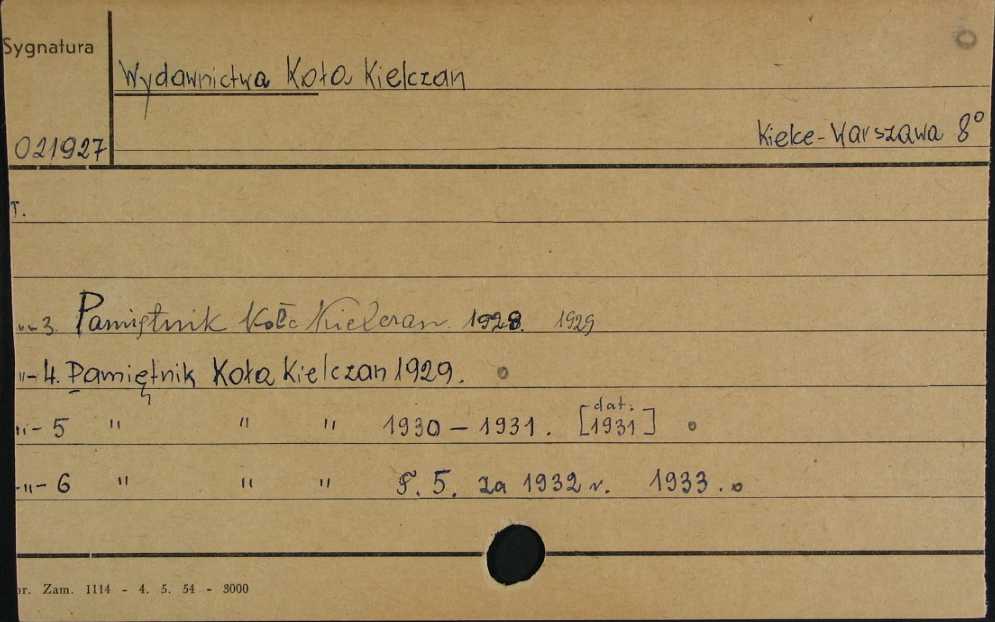 Sygnatura
Wydawnictwa Koła Kielczan
Kielce-Warszawa 8°
021927
T.
-"-3. Pamiętnik Koła Kielczan 1928. 1929
"-4. Pamiętnik Koła Kielczan 1929.
"-5 " " " 1930-1931. [dat. 1931]
-"-6 " " " T. 5. za 1932 r. 1933.
nr. Zam. 1114 - 4. 5. 54 - 3000